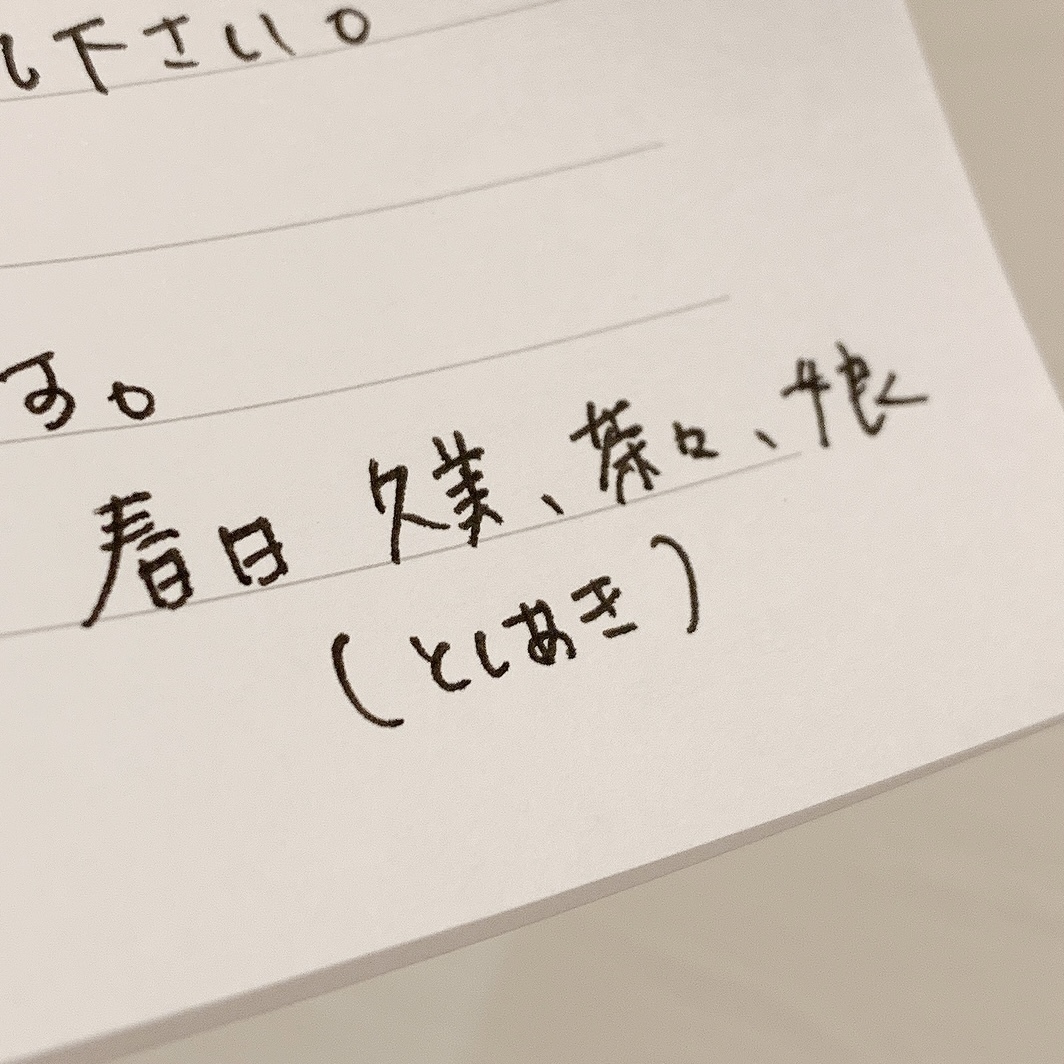 し下さい。
す。
春日 久美、菜々、悢
(としあき)